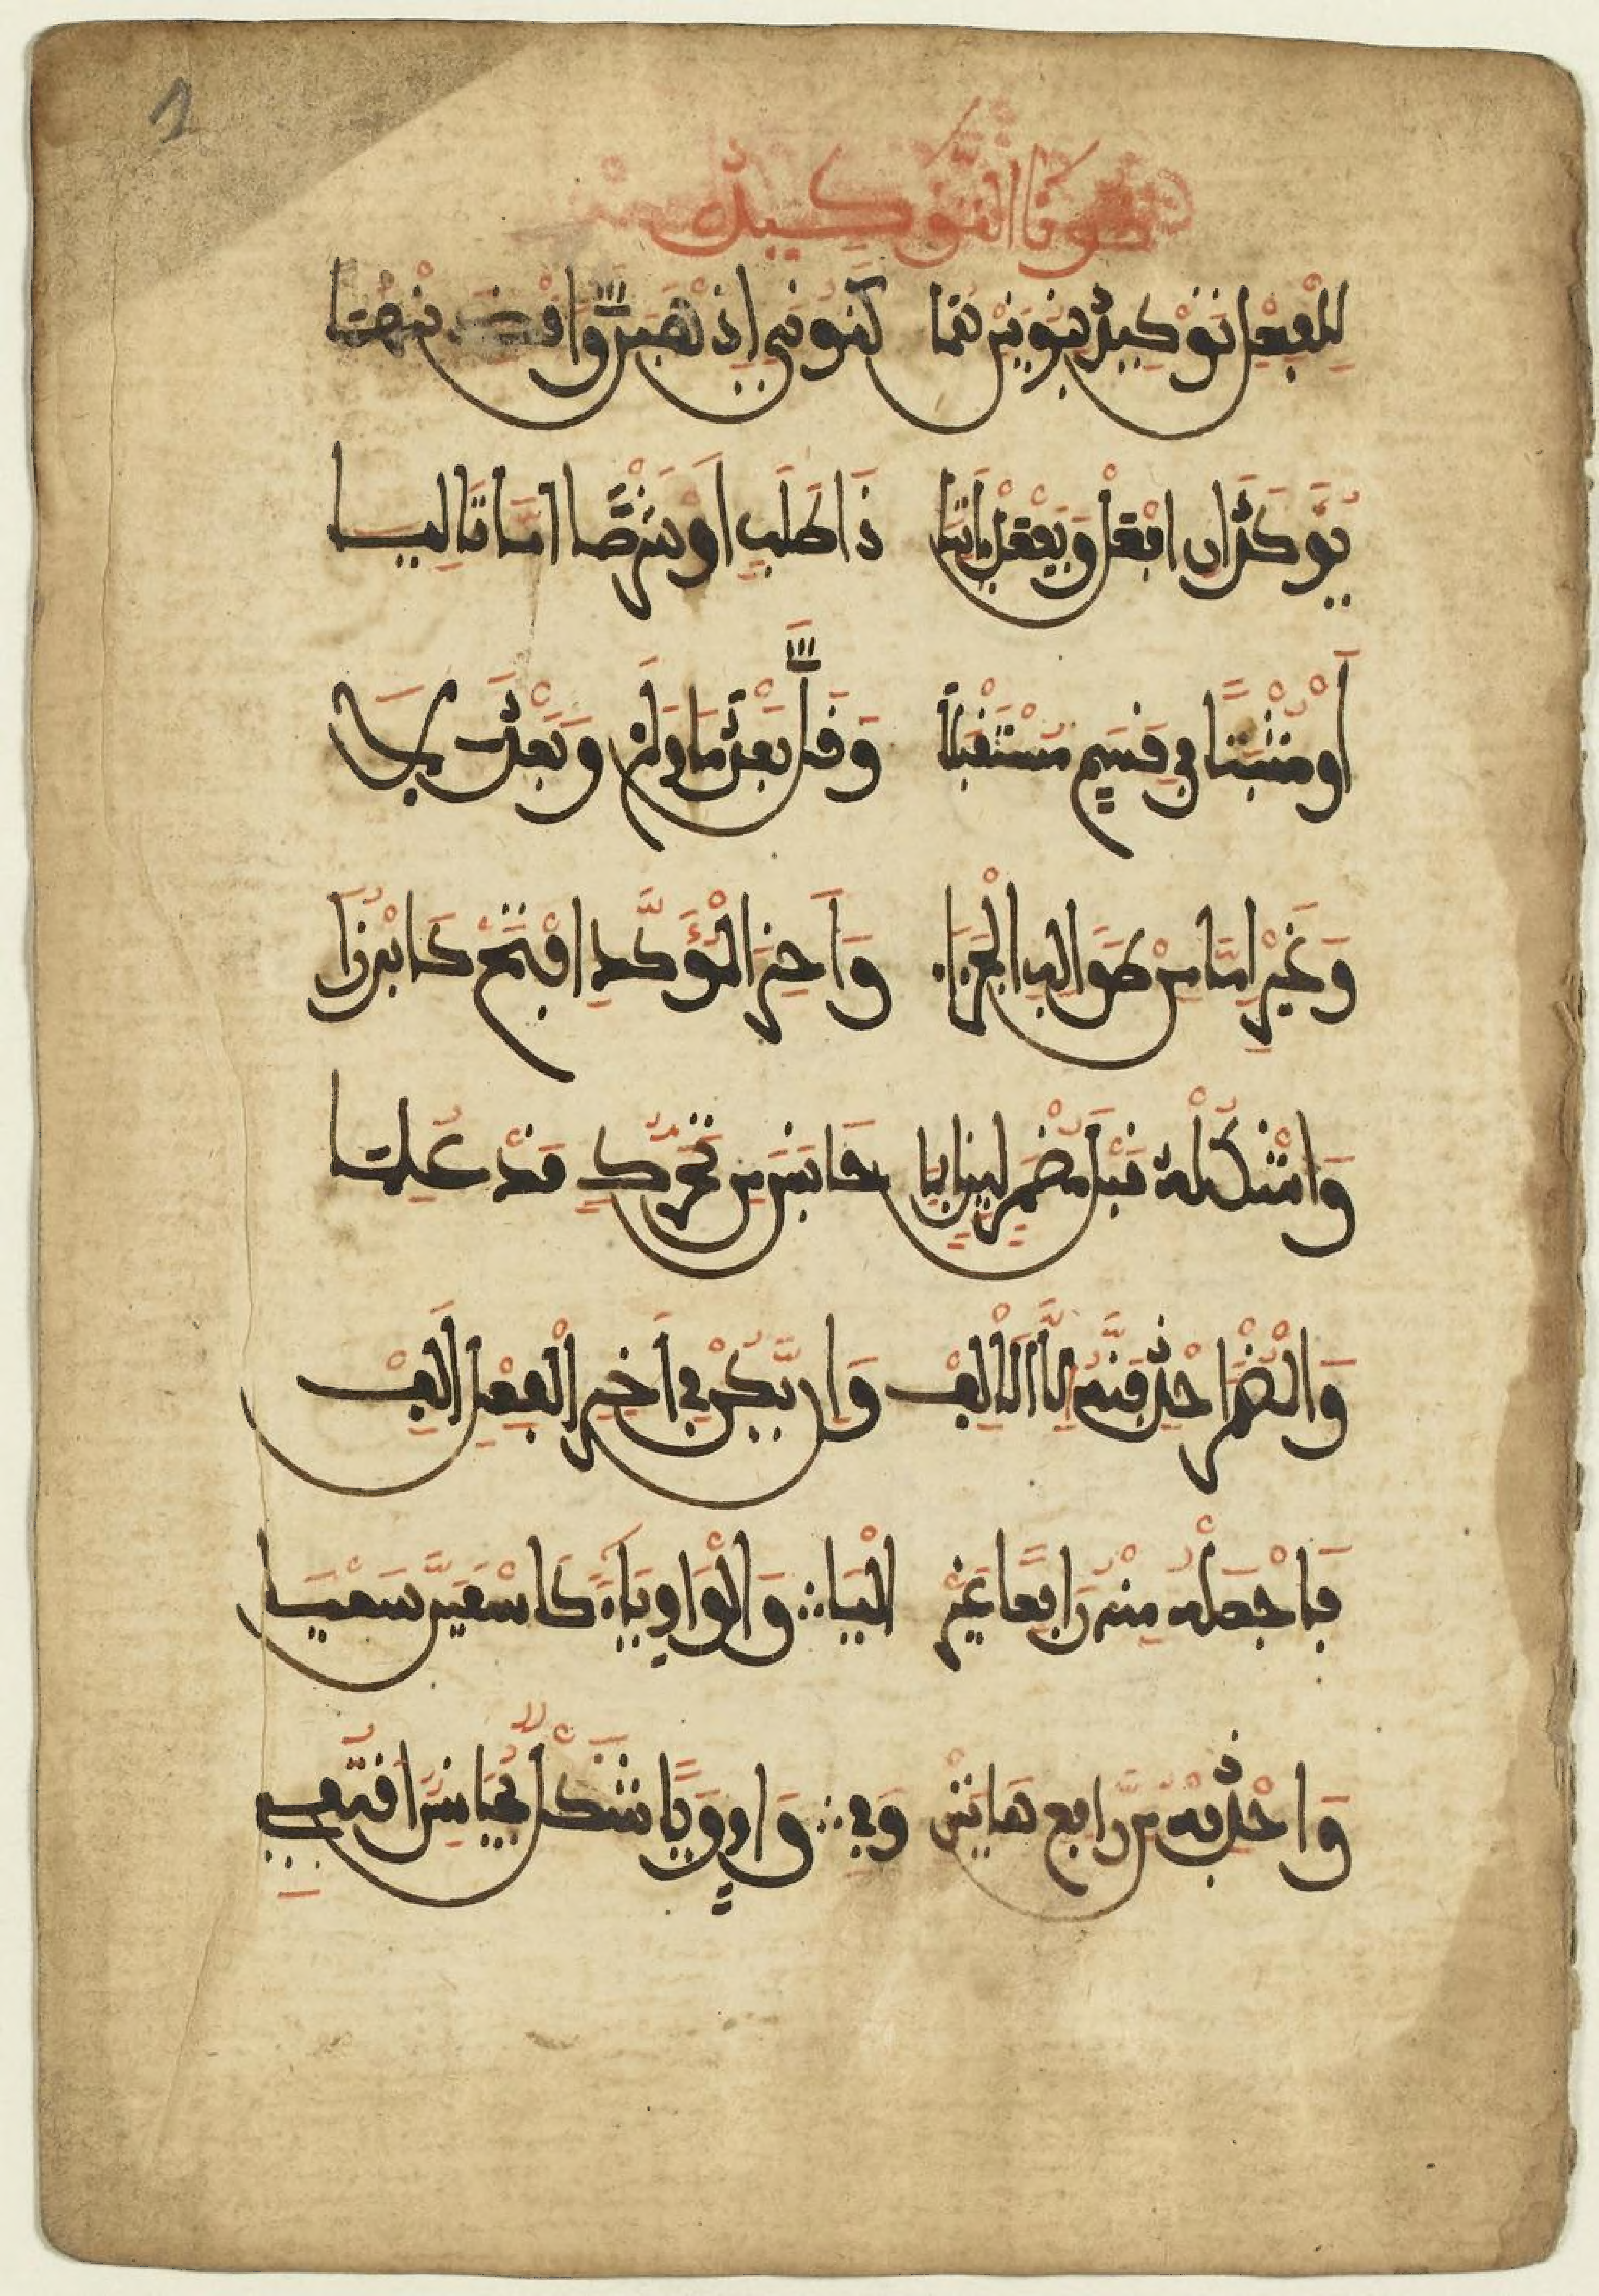 نونا التوكيد
لِلْفِعْلِ تَوْكِيدٌ بِنُونَيْنِ هُمَا كَنُونَيِ اذْهَبَنَّ وَاقْصِدَنْهُمَا
يُوَكِّدَانِ افْعَلْ وَيَفْعَلْ ءَاتِيَا ذَا طَلَبٍ اَوْ شَرْطًا امَّا تَالِيَا
أَوْ مُثْبَتًا فِي قَسَمٍ مُسْتَقْبَلًا وَقَلَّ بَعْدَ مَا وَلَمْ وَبَعْدَ لَا
وَغَيْرِ إِمَّا مِنْ طَوَالِبِ الْجَزَا وَءَاخِرَ الْمُؤَكَّدِ افْتَحْ كَابْرُزَا
وَاشْكُلْهُ قَبْلَ مُضْمَرٍ لِينٍ بِمَا جَانَسَ مِنْ تَحَرُّكٍ قَدْ عُلِمَا
وَالْمُضْمَرَ احْذِفَنَّهُ إِلَّا الْأَلِفْ وَإِنْ يَكُنْ فِي ءَاخِرِ الْفِعْلِ أَلِفْ
فَاجْعَلْهُ مِنْهُ رَافِعًا غَيْرَ الْيَا وَالْوَاوِ يَاءً كَاسْعَيَنَّ سَعْيَا
وَاحْذِفْهُ مِنْ رَافِعِ هَاتَيْنِ وَفِي وَاوٍ وَيَا شَكْلٌ مُجَانِسٌ اقْتُفِي